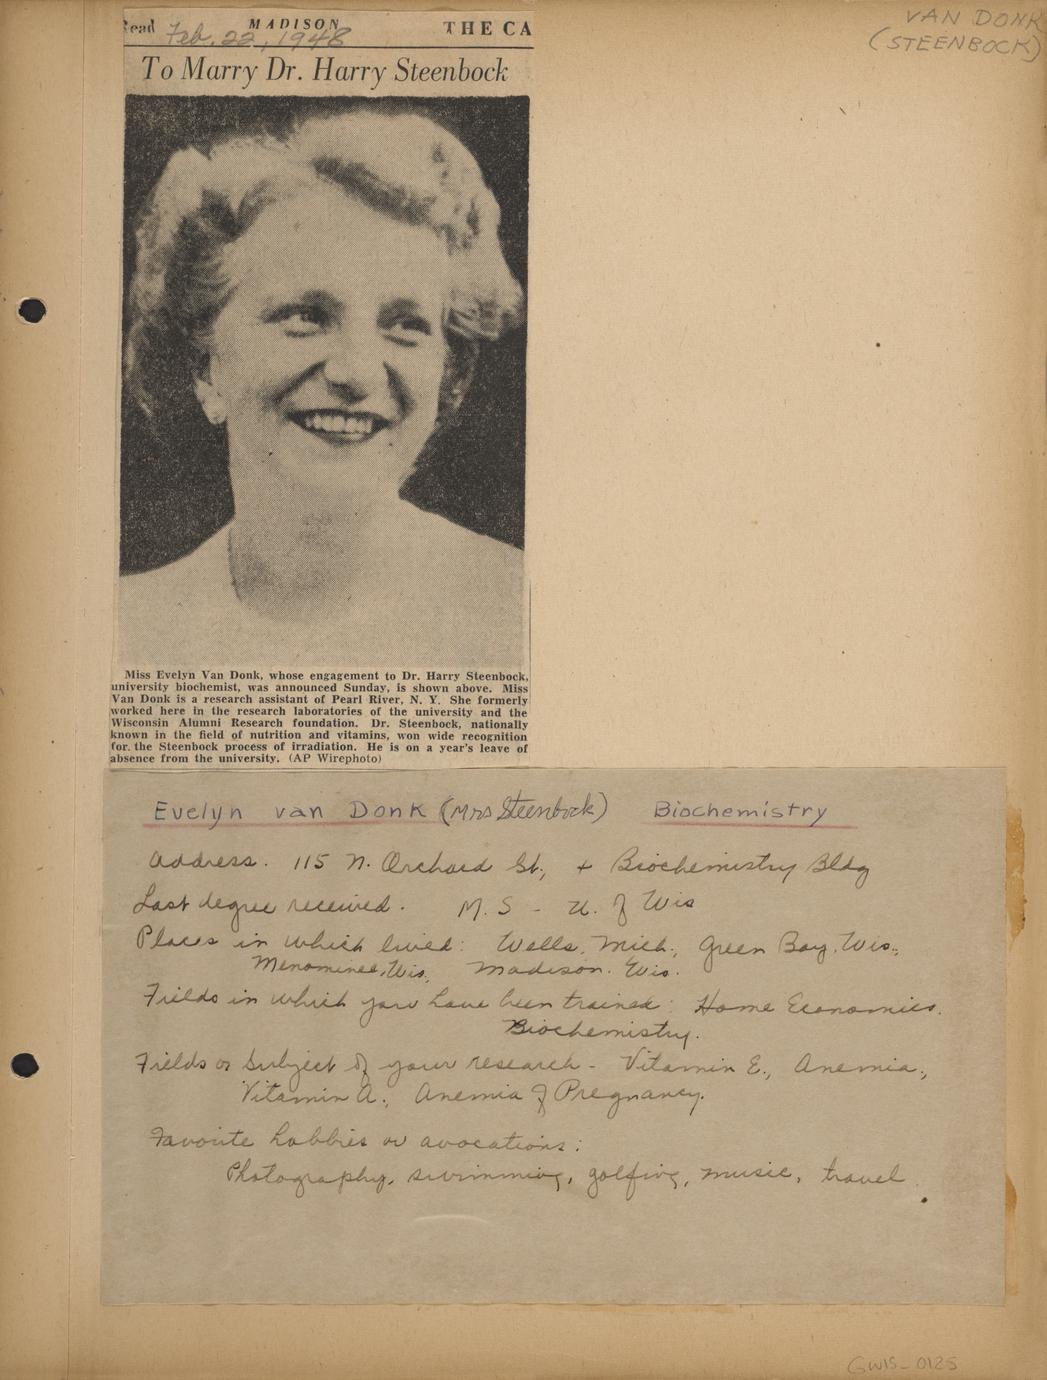 VAN DONK
(STEENBOCK)
Read MADISON THE CA
Feb. 22, 1948
To Marry Dr. Harry Steenbock
Miss Evelyn Van Donk, whose engagement to Dr. Harry Steenbock,
university biochemist, was announced Sunday, is shown above. Miss
Van Donk is a research assistant of Pearl River, N. Y. She formerly
worked here in the research laboratories of the university and the
Wisconsin Alumni Research foundation. Dr. Steenbock, nationally
known in the field of nutrition and vitamins, won wide recognition
for the Steenbock process of irradiation. He is on a year's leave of
absence from the university. (AP Wirephoto)
Evelyn van Donk (Mrs Steenbock) Biochemistry
Address. 115 N. Orchard St., + Biochemistry Bldg
Last degree received. M. S - U. of Wis
Places in which lived: Wells, Mich., Green Bay, Wis.,
Menominee, Wis. Madison. Wis.
Fields in which you have been trained: Home Economics.
Biochemistry.
Fields or Subject of your research - Vitamin E., Anemia.,
Vitamin A., Anemia of Pregnancy.
Favorite hobbies or avocations:
Photography, swimming, golfing, music, travel.
GWIS-0125